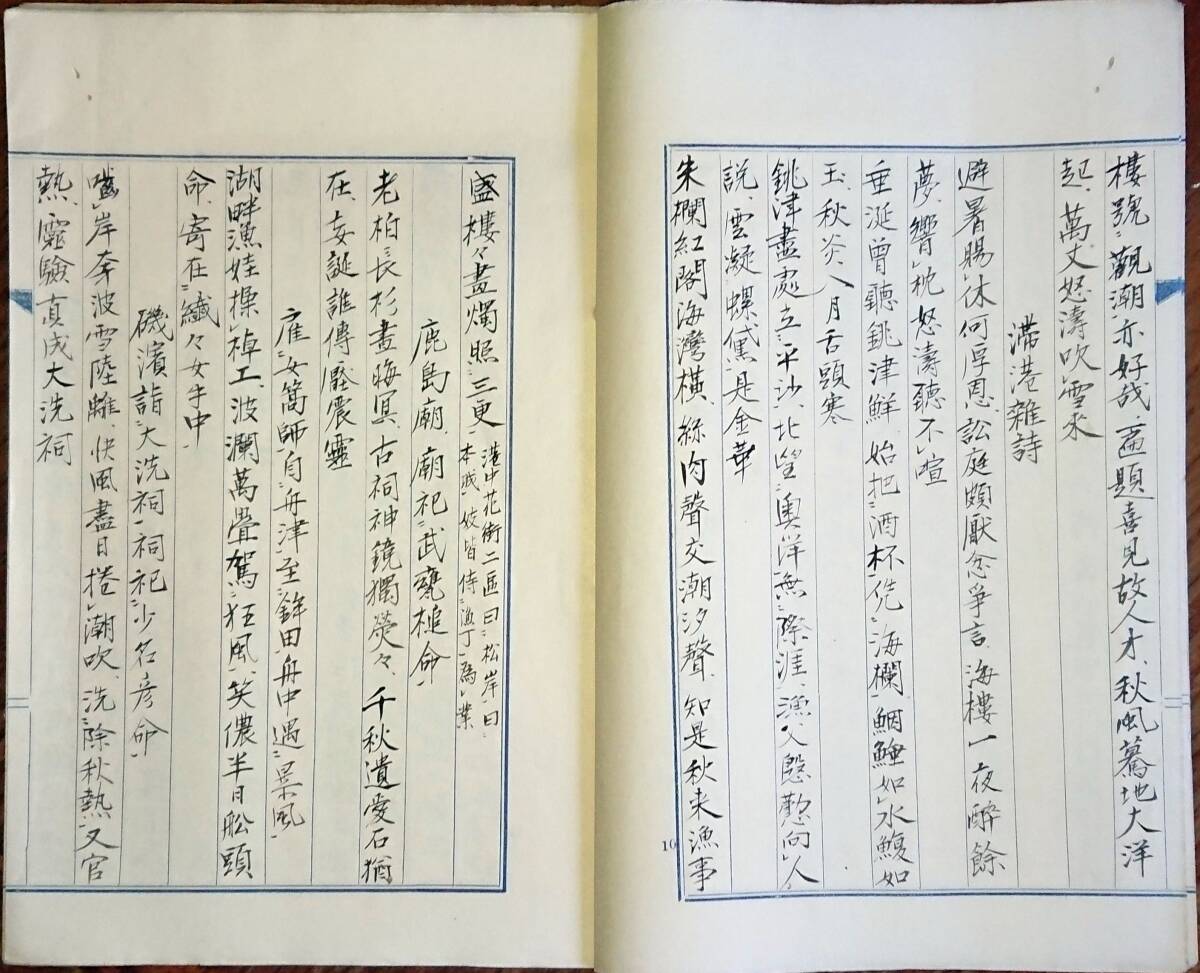 樓號觀潮亦好哉、扁題喜見故人才、秋風驀地大洋
起、萬丈怒濤吹雪來
滞港雜詩
避暑賜休何厚恩、訟庭頗厭忿爭言、海樓一夜醉餘
夢、響枕怒濤聽不喧
垂涎曾聽銚津鮮、始把酒杯凭海欄、鯝鯉如水鰒如
玉、秋炎八月舌頭寒
銚津盡處立平沙、北望奧洋無際涯、漁父慇懃向人
說、雲凝螺黛是金華
朱欄紅閣海灣橫、絲肉聲交潮汐聲、知是秋来漁事
10
盛樓々畫燭照三更 港中花街二區曰松岸曰
本城妓皆侍漁丁為業
鹿島廟、廟祀武甕槌命
老柏長杉畫晦冥、古祠神鏡獨熒々、千秋遺愛石猶
在、妄誕誰傳壓震靈
雇女篙師自舟津至鉾田舟中遇暴風
湖畔漁娃操棹工、波瀾萬疊駕狂風、笑儂半日舩頭
命、寄在纖々女手中
磯濱詣大洗祠、祠祀少名彦命
嚙岸奔波雪陸離、快風盡日捲潮吹、洗除秋熱又官
熱、靈驗真成大洗祠